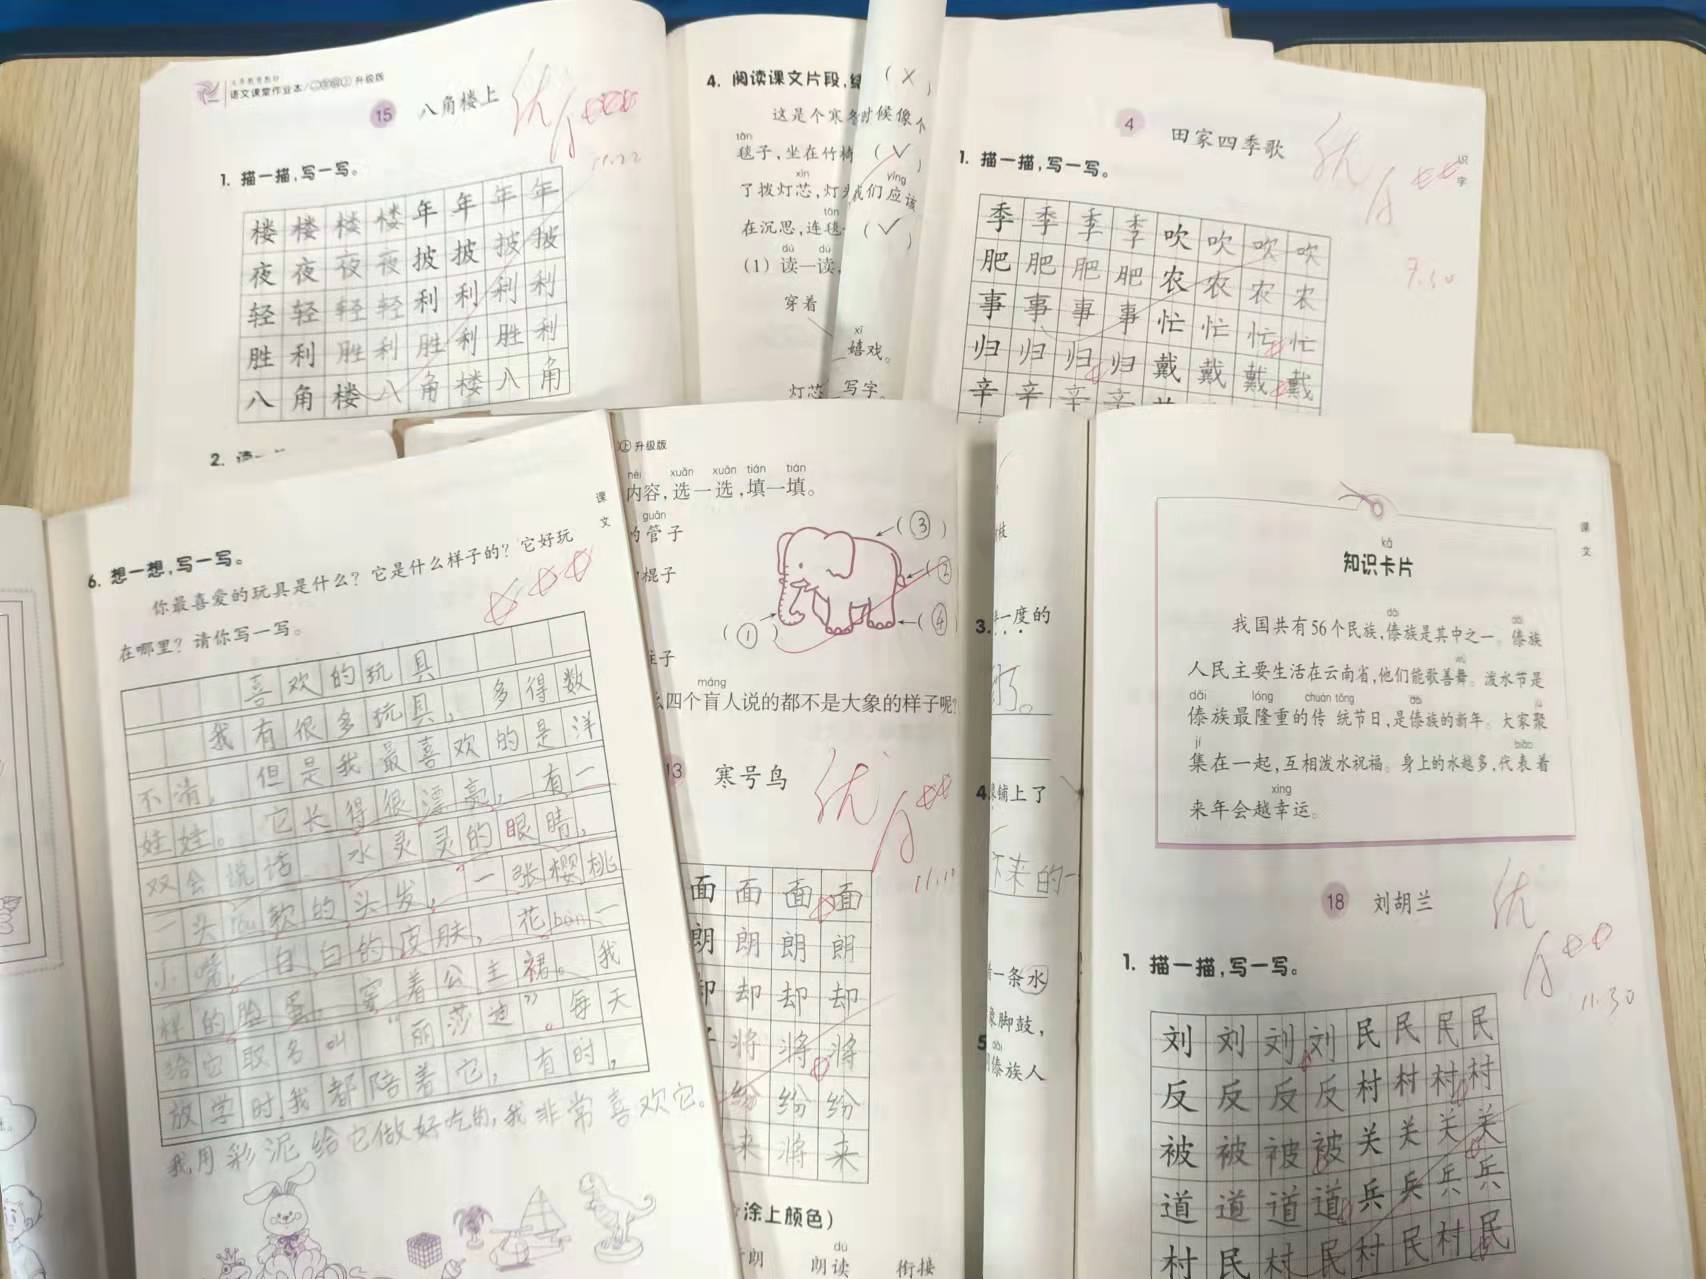 语文课堂作业本
升级版
15 八角楼上
优
11.22
1. 描一描，写一写。
楼楼楼楼年年年年
夜夜夜夜披披披披
轻轻轻轻利利利利
胜利胜利胜利胜利
八角楼八角楼八角
2.
4. 阅读课文片段,
这是个寒冬
tǎn
毯子,坐在竹椅
xìn
了拨灯芯,灯
tǎn
在沉思,连毯
dú dú
(1) 读一读,
穿着
灯芯
(×)
时候像个
(✓)
yīng
我们应该
(✓)
xī
嬉戏。
写字。
4 田家四季歌
识字
优
9.30
1. 描一描,写一写。
季季季季吹吹吹吹
肥肥肥肥农农农农
事事事事忙忙忙忙
归归归归戴戴戴戴
辛辛辛辛
课文
6. 想一想,写一写。
你最喜爱的玩具是什么？它是什么样子的？它好玩
在哪里？请你写一写。
喜欢的玩具
我有很多玩具，多得数
不清，但是我最喜欢的是洋
娃娃。它长得很漂亮，有一
双会说话、水灵灵的眼睛，
一头róu软的头发，一张樱桃
小嘴，白白的皮肤，花bàn一
样的脸蛋。穿着公主裙。我
给它取名叫“丽莎迪”。每天
放学时,我都陪着它，有时，
我用彩泥给它做好吃的,我非常喜欢它。
升级版
nèi xuǎn xuǎn tián tián
内容,选一选,填一填。
guǎn
管子
棍子
(③)
(②)
(①)
(④)
máng
四个盲人说的都不是大象的样子呢?
13 寒号鸟
优
11.11
面面面面
朗朗朗朗
却却却却
将将将
纷纷纷
来将来
涂上颜色)
朗
dú
朗读
衔接
3.
一度的
4.
铺上了
下来的一
一条水
象脚鼓,
5
dǎi
傣族人
课文
kǎ
知识卡片
dǎi dǎi
我国共有56个民族,傣族是其中之一。傣族
wǔ
人民主要生活在云南省,他们能歌善舞。泼水节是
dǎi lóng chuán tǒng dǎi jù
傣族最隆重的传统节日,是傣族的新年。大家聚
jí biǎo
集在一起,互相泼水祝福。身上的水越多,代表着
xìng
来年会越幸运。
18 刘胡兰
优
11.30
1. 描一描,写一写。
刘刘刘刘民民民民
反反反反村村村村
被被被被关关关关
道道道道兵兵兵兵
村民村民村民村民